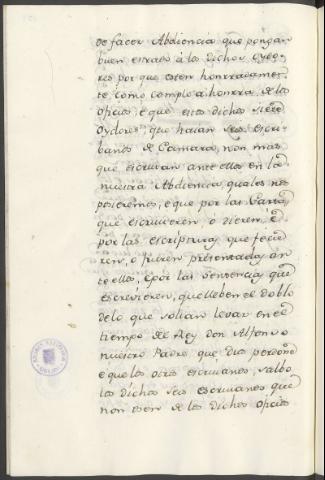 de facer Abdiencia que pongan
buen estrado à los dichos oydo-
res por que esten honrradamen-
te como comple a honrra de los
oficios, è que estos dichos siete
oydores, que haian seis escri-
banos de Camara, non mas
que escrivan ante ellos en la
nuestra Abdiencia, quales nos
posieremos, è que por las Cartas
que escrivieren, o dieren, è
por las escripturas que fecie
ren, o furen presentadas an
te ellos, è por las sentencias que
escrevieren, que lleben el doblo
de lo que solian levar en el
tiempo de el Rey don Alfonso
nuestro Padre que Dios perdone
è que los otros escrivanos, salbo
los dichos seis escrivanos que
non esen de los dichos oficios